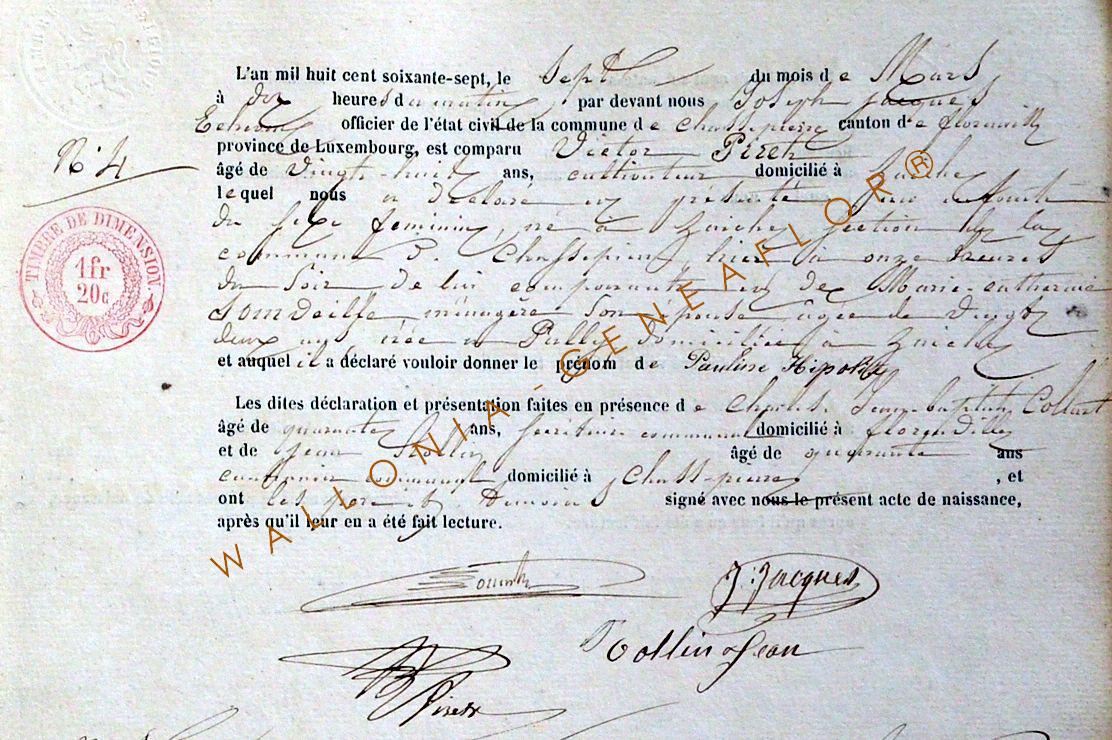 L'an mil huit cent soixante-sept, le Sept du mois de Mars
à dix heures du matin, par devant nous Joseph Jacques
Echevin officier de l'état civil de la commune de Chassepierre canton de florenville
N° 4
province de Luxembourg, est comparu Victor Piret
âgé de Vingt-huit ans, cultivateur domicilié à Laiche
lequel nous a déclaré et présenté un enfant
du sexe feminin, né à Laiche section de la
commune d. Chassepierre, hier à onze heures
du soir de lui comparant et de Marie-catherine
ménagère son épouse âgée de Vingt
deux ans née à Pully domiciliée à Laiche
et auquel il a déclaré vouloir donner le prénom de Pauline Hipolite
Les dites déclaration et présentation faites en présence de Charles Jean-baptiste Collart
âgé de quarante ans, Secrétaire communal domicilié à florenville
et de Jean Collin âgé de quarante ans
cantonnier communal domicilié à Chassepierre, et
ont les père et témoins signé avec nous le présent acte de naissance,
après qu'il leur en a été fait lecture.
J: Jacques
Collin Jean
Piret
TIMBRE DE DIMENSION
1 fr
20 c
WALLONIA - GENEAFLOR®